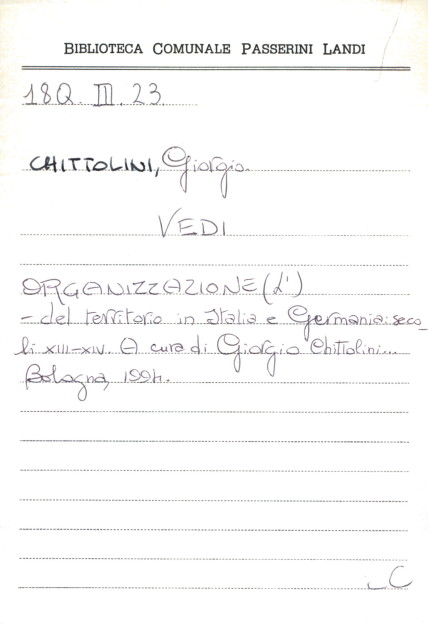 BIBLIOTECA COMUNALE PASSERINI LANDI
18Q. III. 23
CHITTOLINI, Giorgio.
VEDI
ORGANIZZAZIONE (L')
- del territorio in Italia e Germania: seco_
li XIII-XIV. A cura di Giorgio Chittolini...
Bologna, 1994.
C